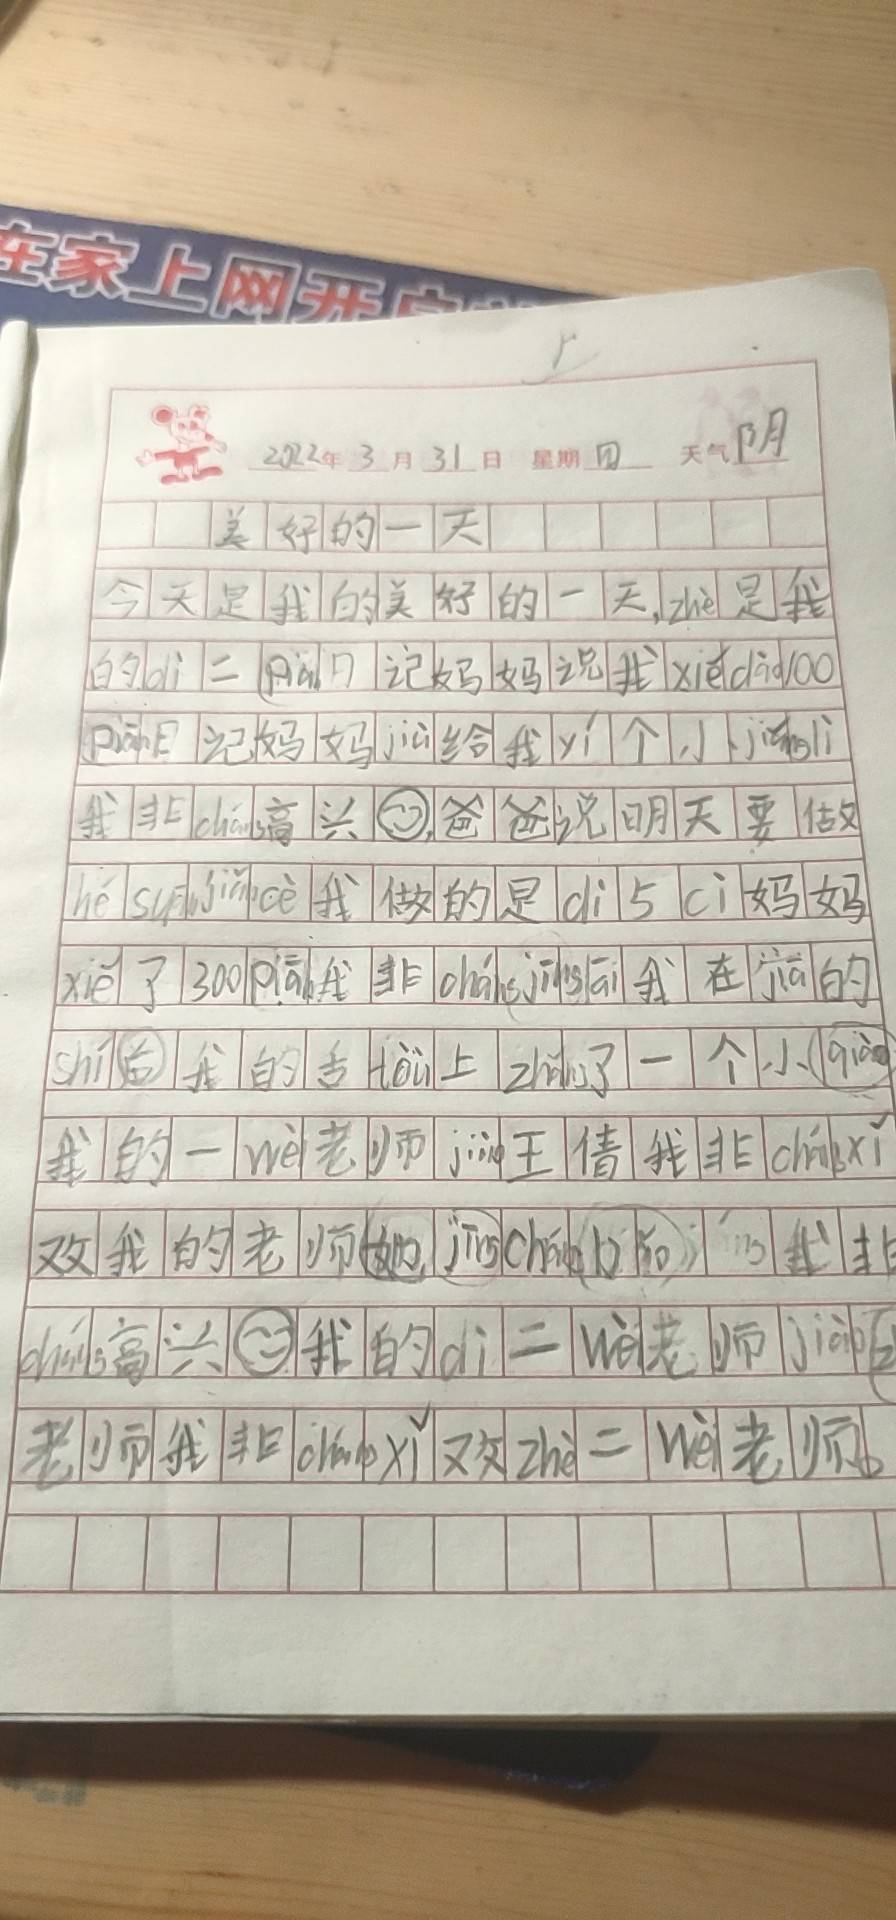 在家上网开
2022年3月31日 星期四 天气阴
美好的一天
今天是我的美好的一天,zhè是我
的dì二piān日记妈妈说我xiě dào 100
piān日记妈妈jiù给我yí个小jiǎnglì
我非cháng高兴,爸爸说明天要做
hé suān jiǎn cè我做的是dì5cì妈妈
xiě了300piān我非cháng jīng lāi我在jiā的
shí后我的舌tou上zhǎng了一个小
我的一wèi老师jiào王倩我非cháng xǐ
欢我的老师她jīng cháng我非
cháng高兴我的dì二wèi老师jiào
老师我非cháng xǐ欢zhè二wèi老师。